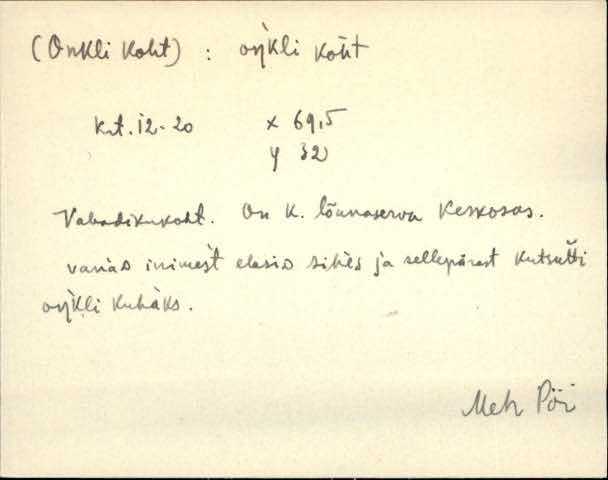 (Onkli koht) : oŋ̀kli koht
krt. 12-20 x 69,5
y 32
Vabadikukoht. On k. lõunaserva keskosas.
vanàD inimest elasiD siHès ja sellepärast kutsutti
oŋ̀kli kuhàks.
Meh Pöi